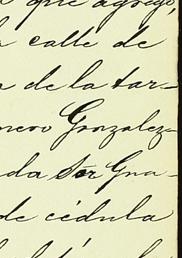 que agrego,
calle de
de la tar-
nero Gonzalez
da Sor Gua-
de cédula